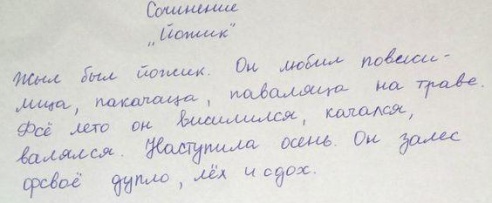 Сочинение
"Йожик"
Жыл был йожик. Он любил повиси-
лица, пакачаща, паваляца на траве.
Фсё лето он висилился, качался,
валялся. Наступила осень. Он залес
фсваё дупло, лёх и сдох.